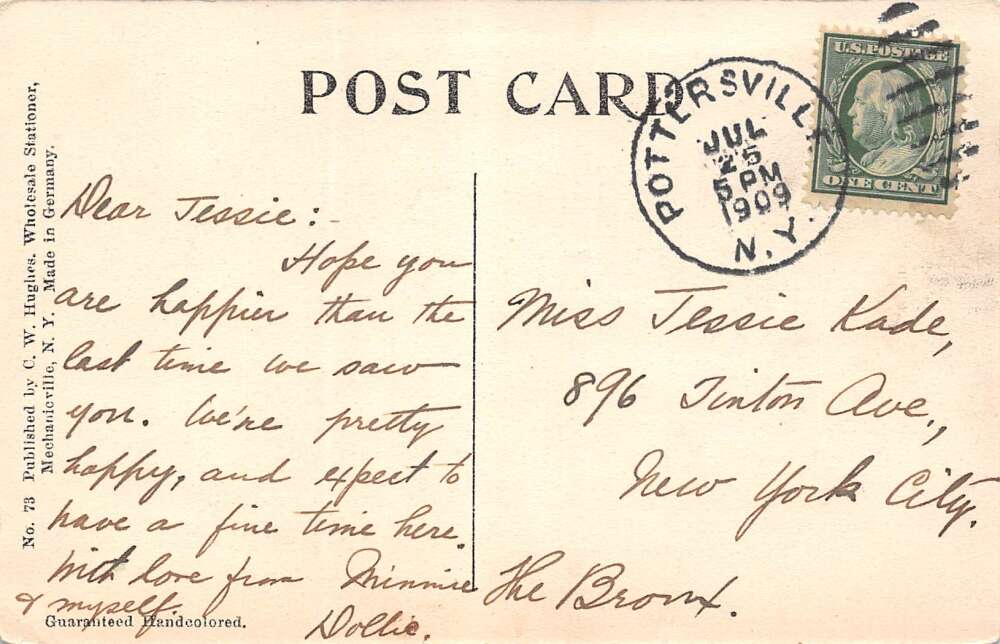 POST CARD
POTTERSVILLE
JUL
25
5 PM
1909
N.Y.
U.S. POSTAGE
ONE CENT
No. 73 Published by C. W. Hughes. Wholesale Stationer,
Mechanicville, N. Y. Made in Germany.
Dear Jessie:-
Hope you
are happier than the
last time we saw
you. We're pretty
happy, and expect to
have a fine time here.
With love from Minnie
& myself.
Dollie.
Guaranteed Handcolored.
Miss Jessie Kade,
896 Tinton Ave.,
New York City.
The Bronx.